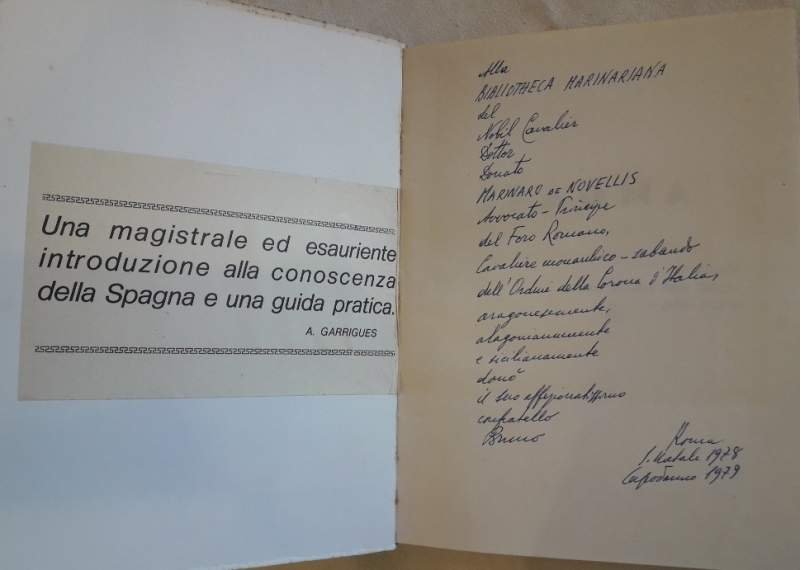 Una magistrale ed esauriente
introduzione alla conoscenza
della Spagna e una guida pratica.
A. GARRIGUES
Alla
BIBLIOTHECA MARINARIANA
del
Nobil Cavalier
Dottor
Donato
MARINARO DE NOVELLIS
Avvocato - Principe
del Foro Romano,
Cavaliere monarchico - sabaudo
dell'Ordine della Corona d'Italia,
aragonesemente,
alagonianamente
e sicilianamente
donò
il suo affezionatissimo
confratello
Bruno
Roma
S. Natale 1978
Capodanno 1979